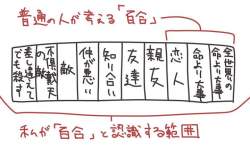 普通の人が考える「百合」
全世界の命より大事
命より大事
恋人
親友
友達
知り合い
仲が悪い
敵
不倶戴天の敵
差し違えてでも殺す
私が「百合」と認識する範囲